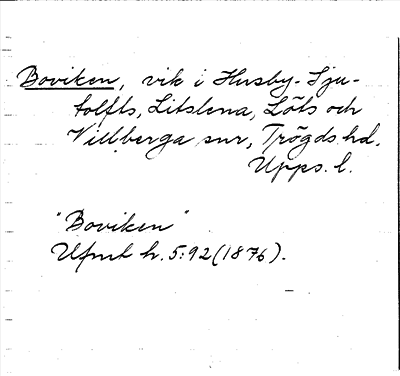 Boviken, vik i Husby-Sju-
tolfts, Litslena, Löts och
Villberga snr, Trögds hd.
Upps. l.
"Boviken"
Ufmt h. 5:92 (1876).